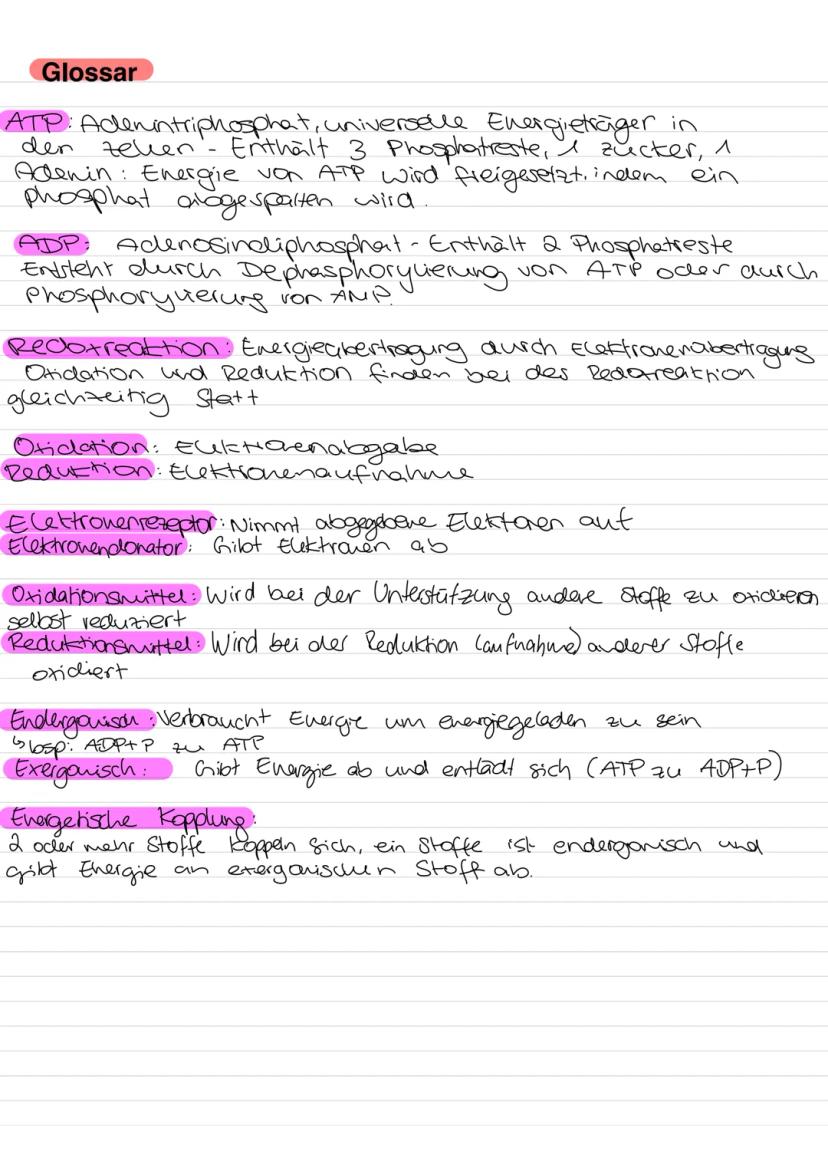 Glossar
ATP: Adenintriphosphat, universelle Energieträger in
den Zellen - Enthält 3 Phosphatreste, 1 Zucker, 1
Adenin : Energie von ATP wird freigesetzt, indem ein
phosphat abgespalten wird.
ADP: Adenosindiphosphat - Enthält 2 Phosphatreste
Entsteht durch Dephosphorylierung von ATP oder durch
Phosphorylierung von AMP.
Redoxreaktion: Energieübertragung durch Elektronenübertragung
Oxidation und Reduktion finden bei des Redoxreaktion
gleichzeitig statt
Oxidation: Elektronenabgabe
Reduktion: Elektronenaufnahme
Elektronenrezeptor: Nimmt abgegebene Elektonen auf
Elektronendonator: Gibt Elektronen ab
Oxidationsmittel: Wird bei der Unterstützung andere Stoffe zu oxidieren
selbst reduziert
Reduktionsmittel: Wird bei der Reduktion (aufnahme) anderer Stoffe
oxidiert
Endergonisch: Verbraucht Energie um energiegeladen zu sein
↳ bsp: ADP+P zu ATP
Exergonisch: Gibt Energie ab und entlädt sich (ATP zu ADP+P)
Energetische Kopplung:
2 oder mehr Stoffe koppeln sich, ein Stoffe ist endergonisch und
gibt Energie an exergonischen Stoff ab.